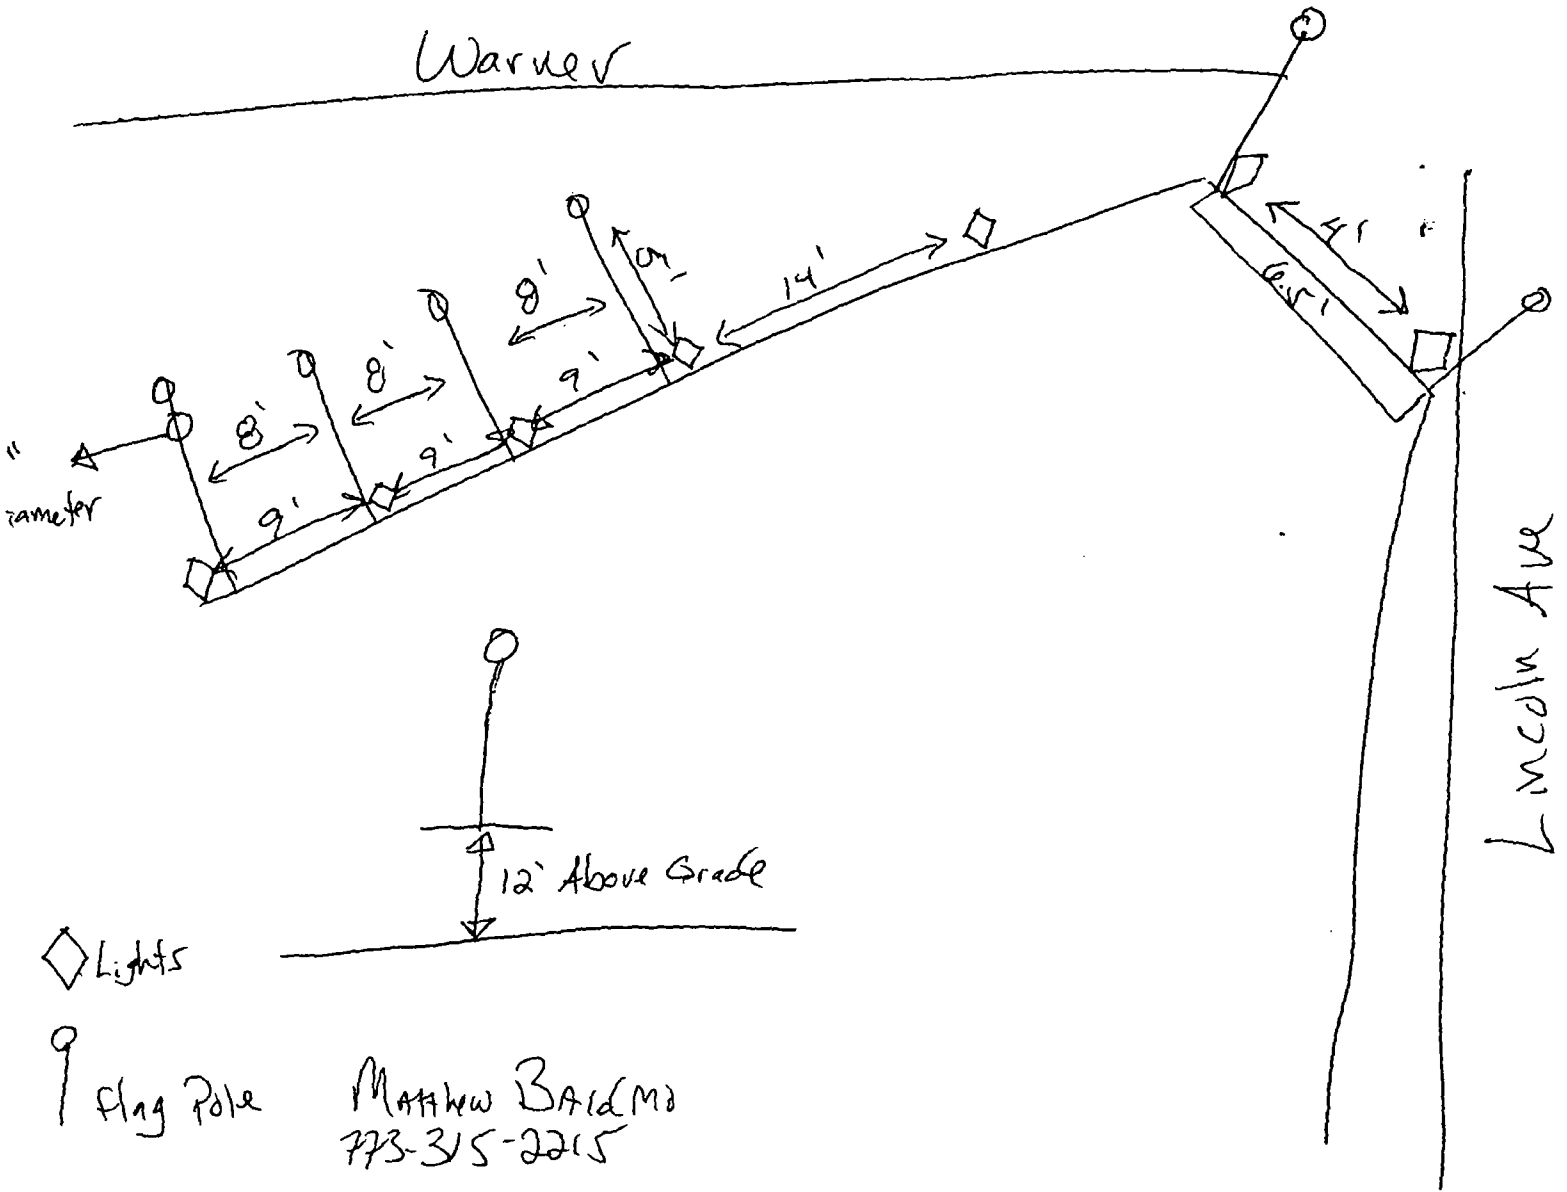 Warner
4'
6.5'
14'
5'
8'
9'
8'
9'
8'
9'
"
iameter
Lincoln Ave
12' Above Grade
Lights
Flag Pole
Matthew
773-315-2215